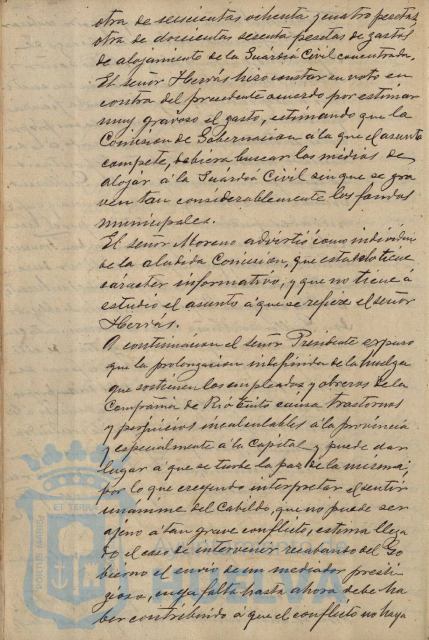 otra de seiscientas ochenta y cuatro pesetas
otra de doscientas sesenta pesetas de gastos
de alojamiento de la Guardia Civil concentrada.
El señor Herrás hizo constar su voto en
contra del precedente acuerdo por estimar
muy grañoso el gasto, estimando que la
Comision de Gobernacion á la que el asunto
compete, debiera buscar los medios de
alojar á la Guardia Civil sin que se gra
ven tan considerablemente los fondos
municipales.
El señor Moreno advirtió como individuo
de la aludida Comision, que esta solo tiene
caracter informativo, y que no tiene á
estudio el asunto á que se refiere el señor
Herrás.
A continuacion el señor Presidente expuso
que la prolongacion indefinida de la huelga
que sostienen los empleados y obreros de la
Compañia de Rio Tinto causa trastornos
y perjuicios incalculables á la provincia
y especialmente á la Capital y puede dar
lugar á que se turbe la paz de la misma;
por lo que creyendo interpretar el sentir
unánime del Cabildo, que no puede ser
ajeno á tan grave conflicto, estima llega
do el caso de intervenir recabando del Go
bierno el envio de un mediador presti
gioso, cuya falta hasta ahora debe ha
ber contribuido á que el conflicto no haya
ET TERRÆ
HUELVA